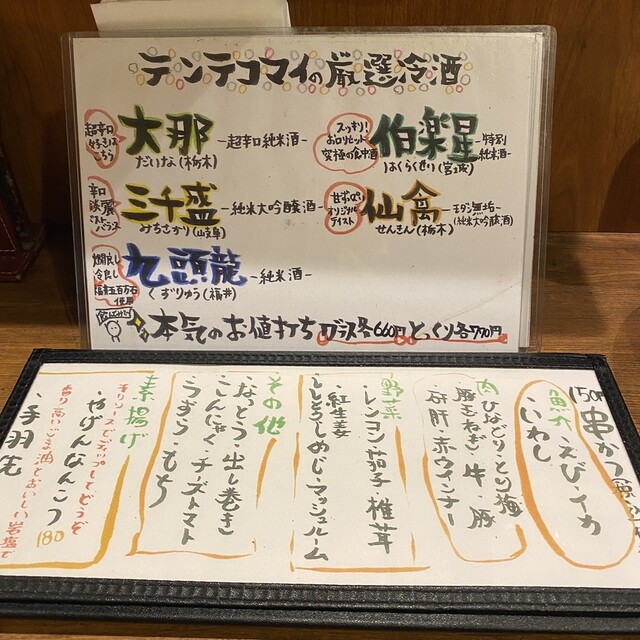 テンテコマイの厳選冷酒
超辛口
好きは
こちら
大那
だいな(栃木)
-超辛口純米酒-
スッキリ!
お口リセット
究極の食中酒
伯楽星
はくらくせい(宮城)
-特別
純米酒-
辛口
淡麗
ベストバランス
三千盛
みちさかり(山岐阜)
-純米大吟醸酒-
甘ずっぱ
オリジナル
テイスト
仙禽
せんきん(栃木)
-モダン無垢-
(純米大吟醸酒)
燗良し
冷良し
福井五百万石
使用
九頭龍
くずりゅう(福井)
-純米酒-
飲んでみて!
本気のお値打ち グラス各660円 とっくり各770円
150円
串かつ
魚介
・えび・イカ
・いわし
肉
ひなどり・とり梅
豚玉ねぎ・牛・豚
砂肝・赤ウインナー
野菜
・レンコン・茄子・椎茸
・紅生姜
・ししとう・しめじ・マッシュルーム
その他
なっとう・出し巻き
こんにゃく・チーズトマト
うずら・もち
素揚げ
チリソースにディップしてどうぞ
・やげんなんこつ 180
あり高いごま油とおいしい岩塩で
・手羽先